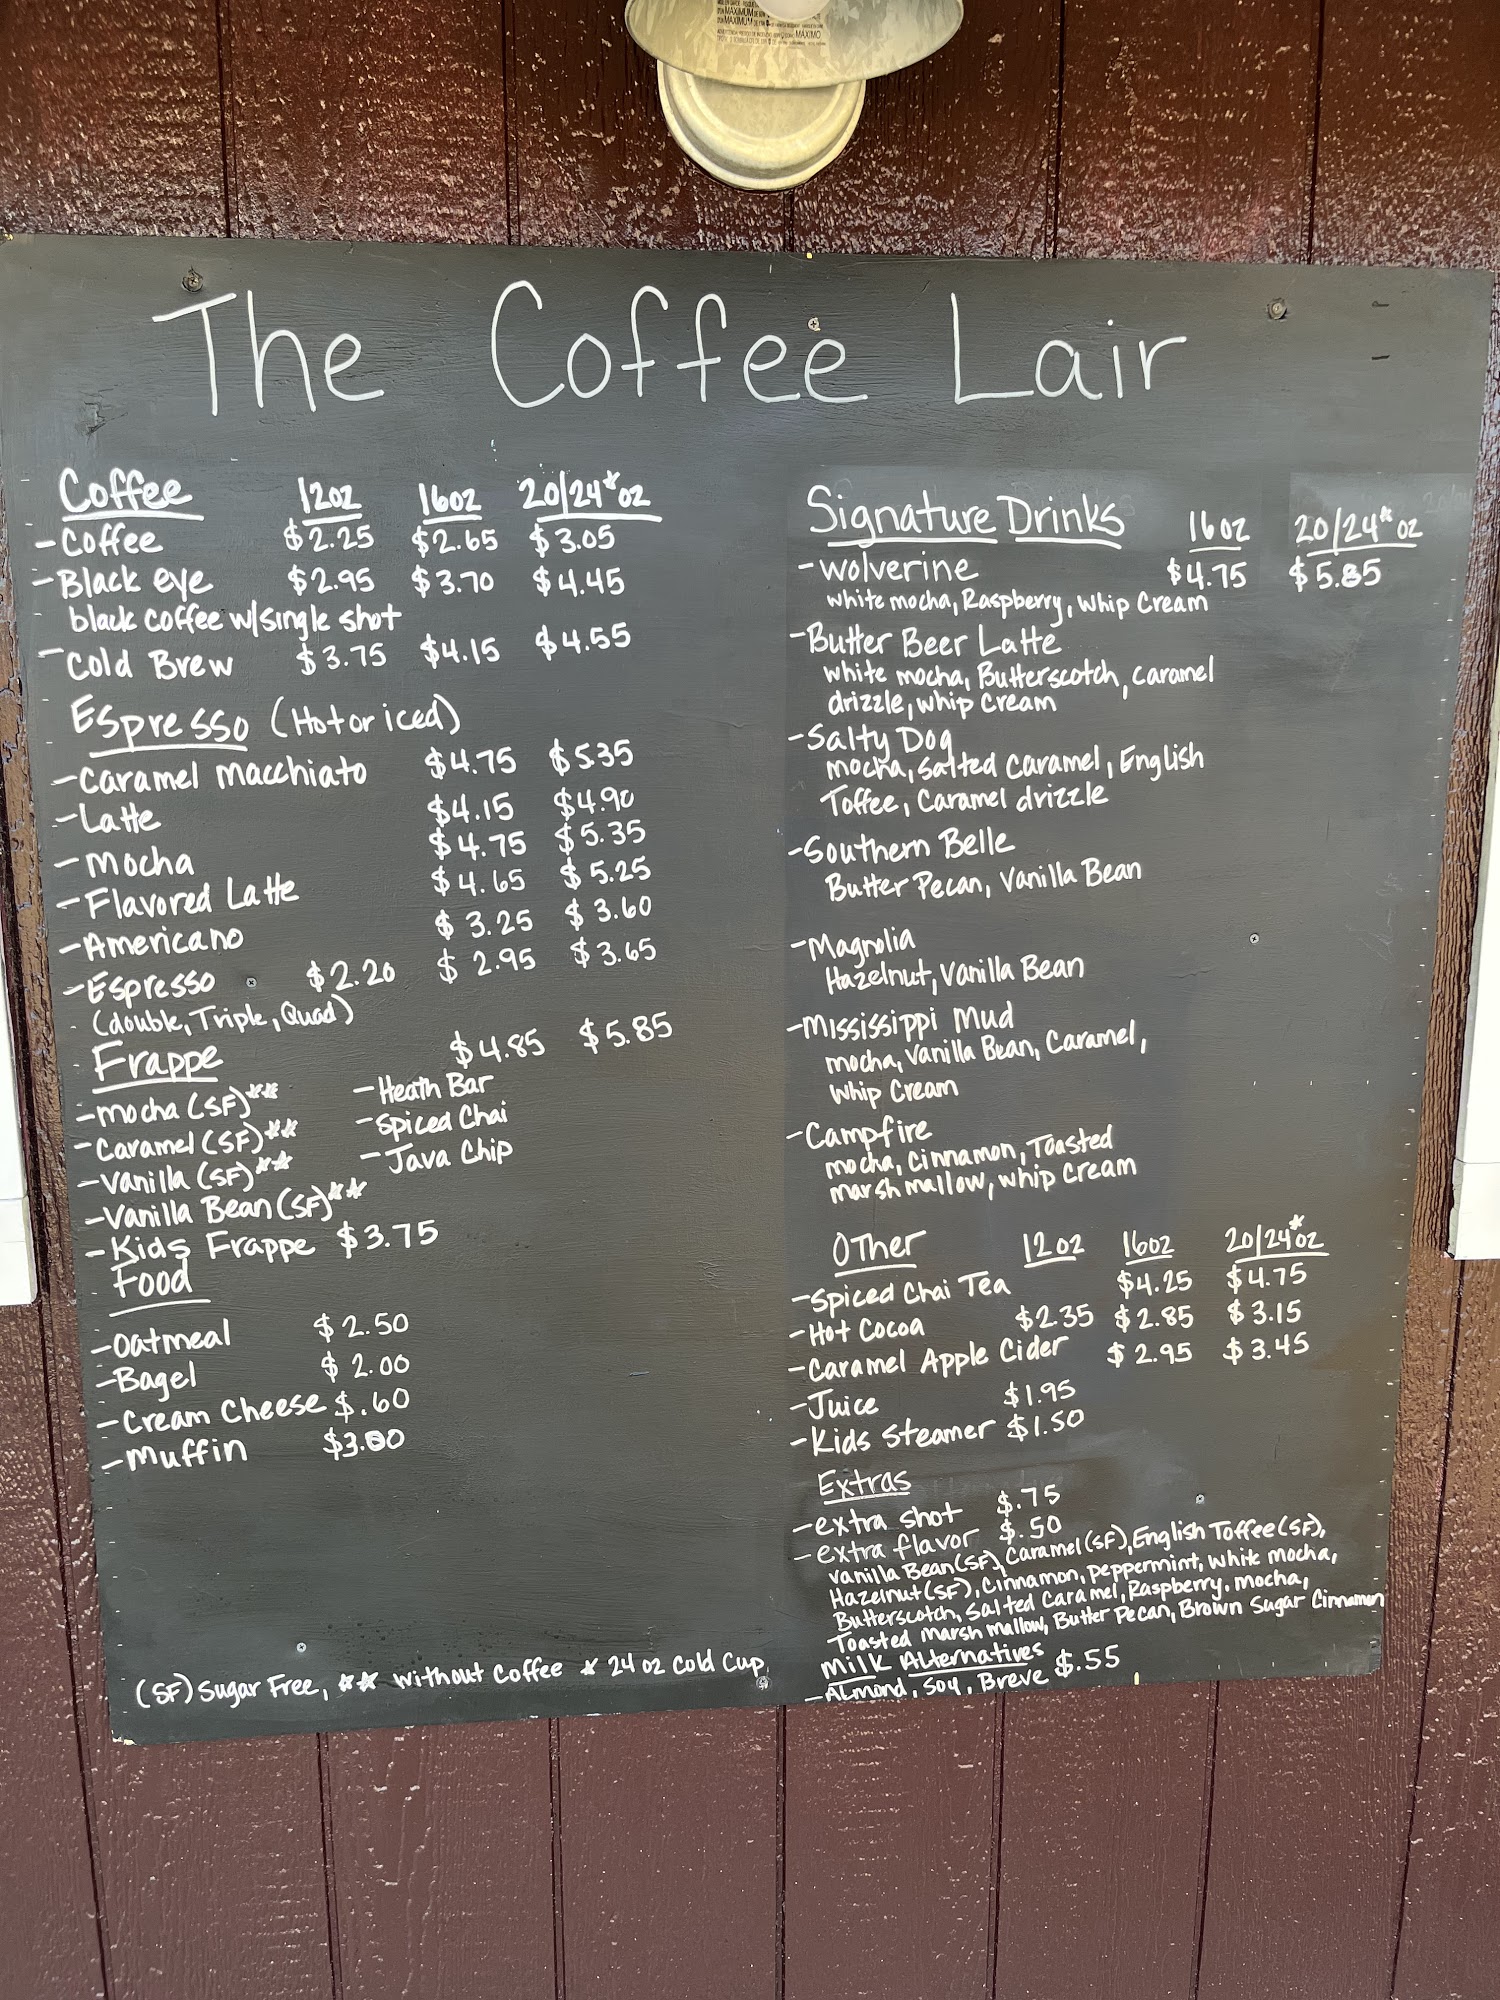 The Coffee Lair
Coffee 12oz 16oz 20/24*oz
- Coffee $2.25 $2.65 $3.05
- Black eye $2.95 $3.70 $4.45
black coffee w/single shot
- Cold Brew $3.75 $4.15 $4.55
Espresso (Hot or iced)
- Caramel macchiato $4.75 $5.35
- Latte $4.15 $4.90
- Mocha $4.75 $5.35
- Flavored Latte $4.65 $5.25
- Americano $3.25 $3.60
- Espresso $2.20 $2.95 $3.65
(double, Triple, Quad)
Frappe $4.85 $5.85
- mocha (SF)** - Heath Bar
- Caramel (SF)** - Spiced Chai
- Vanilla (SF)** - Java Chip
- Vanilla Bean (SF)**
- Kids Frappe $3.75
Food
- Oatmeal $2.50
- Bagel $2.00
- Cream Cheese $.60
- Muffin $3.00
(SF) Sugar Free, ** without coffee * 24 oz Cold Cup
Signature Drinks 16oz 20/24*oz
- Wolverine $4.75 $5.85
white mocha, Raspberry, Whip Cream
- Butter Beer Latte
white mocha, Butterscotch, caramel
drizzle, whip Cream
- Salty Dog
mocha, salted caramel, English
Toffee, Caramel drizzle
- Southern Belle
Butter Pecan, Vanilla Bean
- Magnolia
Hazelnut, Vanilla Bean
- Mississippi Mud
mocha, Vanilla Bean, Caramel,
Whip Cream
- Campfire
mocha, Cinnamon, Toasted
marshmallow, whip Cream
Other 12oz 16oz 20/24*oz
- Spiced Chai Tea $4.25 $4.75
- Hot Cocoa $2.35 $2.85 $3.15
- Caramel Apple Cider $2.95 $3.45
- Juice $1.95
- Kids Steamer $1.50
Extras
- extra shot $.75
- extra flavor $.50
Vanilla Bean (SF), Caramel (SF), English Toffee (SF),
Hazelnut (SF), Cinnamon, peppermint, white mocha,
Butterscotch, Salted Caramel, Raspberry, mocha,
Toasted Marshmallow, Butter Pecan, Brown Sugar Cinnamon
Milk Alternatives $.55
- Almond, Soy, Breve